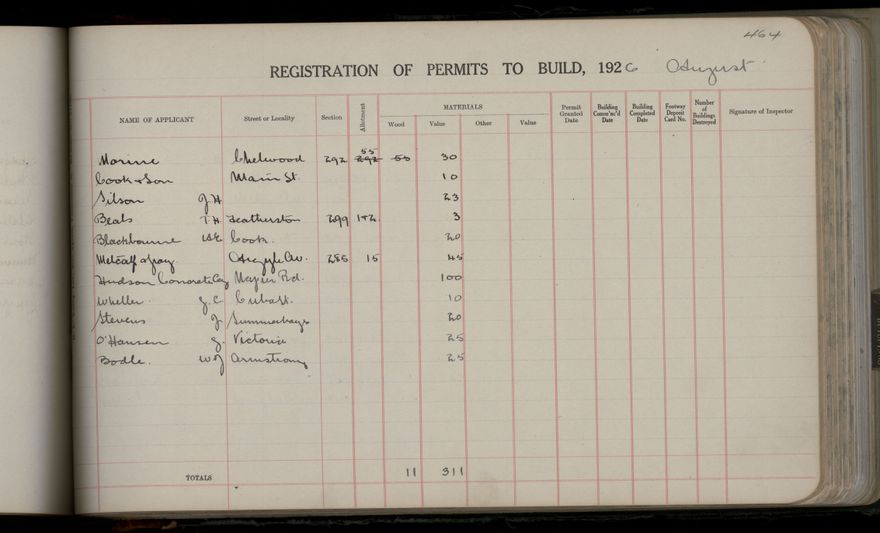 464
REGISTRATION OF PERMITS TO BUILD, 1926 August
NAME OF APPLICANT Street or Locality Section Allotment MATERIALS Permit Granted Date Building Comm'nc'd Date Building Completed Date Footway Deposit Card No. Number of Buildings Destroyed Signature of Inspector
Wood Value Other Value
55
Morine Chelwood 292 292 55 30
Cook & Son Main St. 10
J.H. 23
Beals T.H. Featherston 299 1+2. 3
Blackbourne Cook. 20
Metcalf Argyle Av. 286 15 45
Hudson Concrete Coy Napier Rd. 100
Wheller. J.C. Cuba St. 10
Stevens J. Summerhays 20
O'Hansen J. Victoria 25
Bodle. W J Armstrong 25
TOTALS 11 311